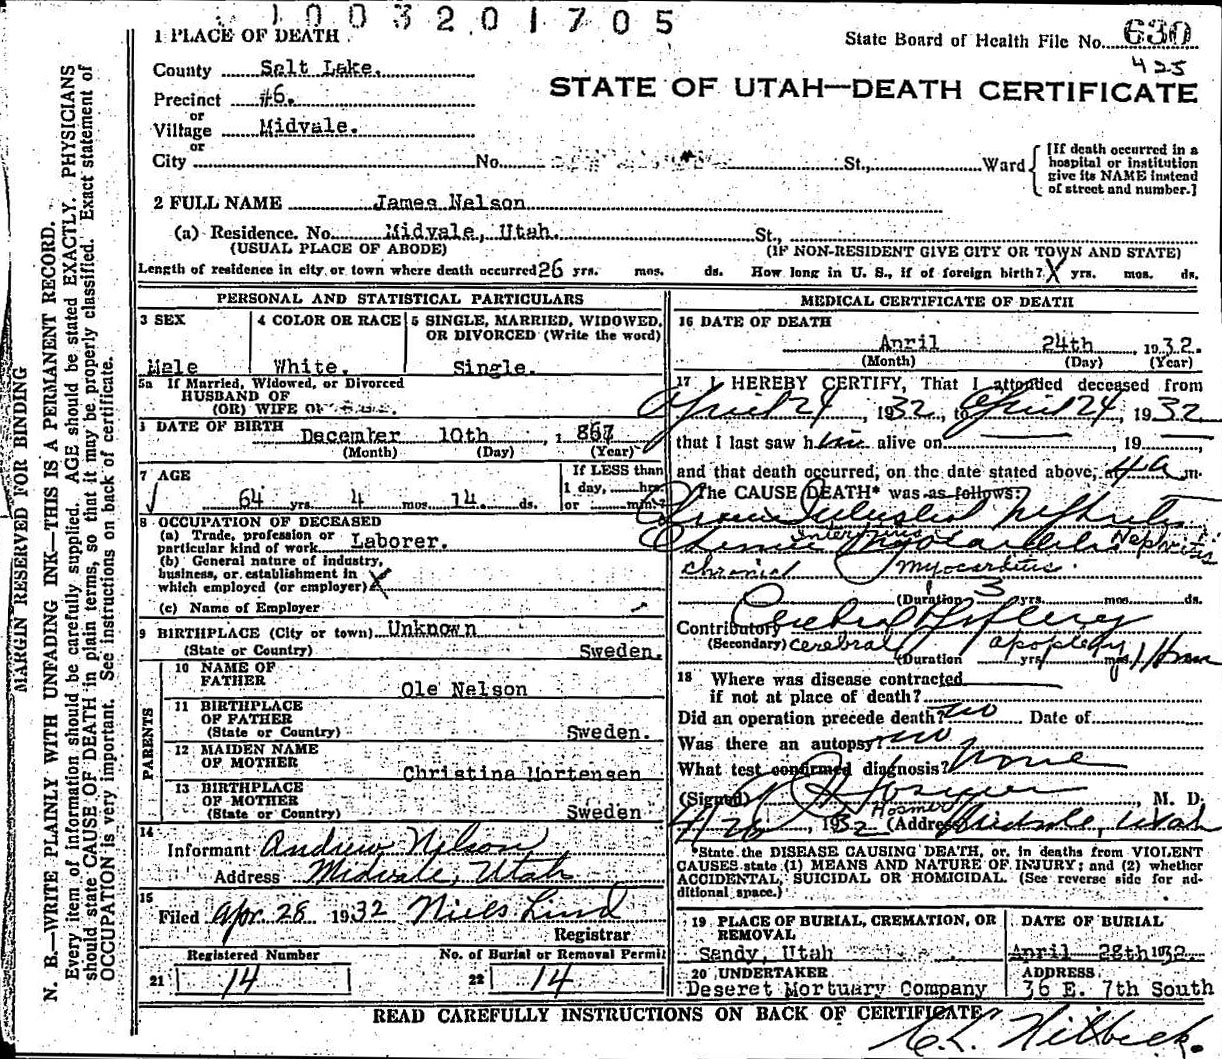 1003201705
1 PLACE OF DEATH
State Board of Health File No. 630
425
County Salt Lake.
STATE OF UTAH—DEATH CERTIFICATE
Precinct #6.
or
Village Midvale.
or
City No. St., Ward
[If death occurred in a hospital or institution give its NAME instead of street and number.]
2 FULL NAME James Nelson
(a) Residence. No. Midvale, Utah. St.,
(USUAL PLACE OF ABODE) (IF NON-RESIDENT GIVE CITY OR TOWN AND STATE)
Length of residence in city or town where death occurred 26 yrs. mos. ds. How long in U. S., if of foreign birth? X yrs. mos. ds.
PERSONAL AND STATISTICAL PARTICULARS
3 SEX
4 COLOR OR RACE
5 SINGLE, MARRIED, WIDOWED, OR DIVORCED (Write the word)
Male White. Single.
5a If Married, Widowed, or Divorced
HUSBAND OF
(OR) WIFE OF
DATE OF BIRTH December 10th, 1867
(Month) (Day) (Year)
7 AGE
If LESS than
1 day, hrs.
or min.?
64 yrs. 4 mos. 14. ds.
8 OCCUPATION OF DECEASED
(a) Trade, profession or
particular kind of work Laborer.
(b) General nature of industry,
business, or establishment in
which employed (or employer) X
(c) Name of Employer
9 BIRTHPLACE (City or town) Unknown
(State or Country) Sweden.
PARENTS
10 NAME OF
FATHER
Ole Nelson
11 BIRTHPLACE
OF FATHER
(State or Country) Sweden.
12 MAIDEN NAME
OF MOTHER
Christina Mortensen
13 BIRTHPLACE
OF MOTHER
(State or Country) Sweden
14
Informant Andrew Nelson
Address Midvale, Utah
15
Filed Apr. 28 1932 Niels Lind
Registrar
Registered Number No. of Burial or Removal Permit
21 14 22 14
MEDICAL CERTIFICATE OF DEATH
16 DATE OF DEATH
April 24th, 1932.
(Month) (Day) (Year)
17 I HEREBY CERTIFY, That I attended deceased from
April 24, 1932, to April 24, 1932
that I last saw him alive on 19
and that death occurred, on the date stated above, at 4 a m.
The CAUSE DEATH* was as follows:
Chronic Interstitial Nephritis
Chronic Myocarditis
Interstitial Nephritis
chronic myocarditis.
(Duration 3 yrs. mos. ds.
Contributory Cerebral Apoplexy
(Secondary) cerebral apoplexy
(Duration yrs. mos. 1 Hour
18 Where was disease contracted
if not at place of death?
Did an operation precede death? no Date of
Was there an autopsy? no
What test confirmed diagnosis? None
(Signed) Hosmer, M. D.
Hosmer
4/28, 1932 (Address) Midvale, Utah
*State the DISEASE CAUSING DEATH, or, in deaths from VIOLENT
CAUSES state (1) MEANS AND NATURE OF INJURY; and (2) whether
ACCIDENTAL, SUICIDAL OR HOMICIDAL. (See reverse side for additional space.)
19 PLACE OF BURIAL, CREMATION, OR REMOVAL
DATE OF BURIAL
Sandy, Utah April 28th 1932
20 UNDERTAKER
ADDRESS
Deseret Mortuary Company 36 E. 7th South
READ CAREFULLY INSTRUCTIONS ON BACK OF CERTIFICATE
MARGIN RESERVED FOR BINDING
N. B.—WRITE PLAINLY WITH UNFADING INK—THIS IS A PERMANENT RECORD.
Every item of information should be carefully supplied. AGE should be stated EXACTLY. PHYSICIANS
should state CAUSE OF DEATH in plain terms, so that it may be properly classified. Exact statement of
OCCUPATION is very important. See instructions on back of certificate.